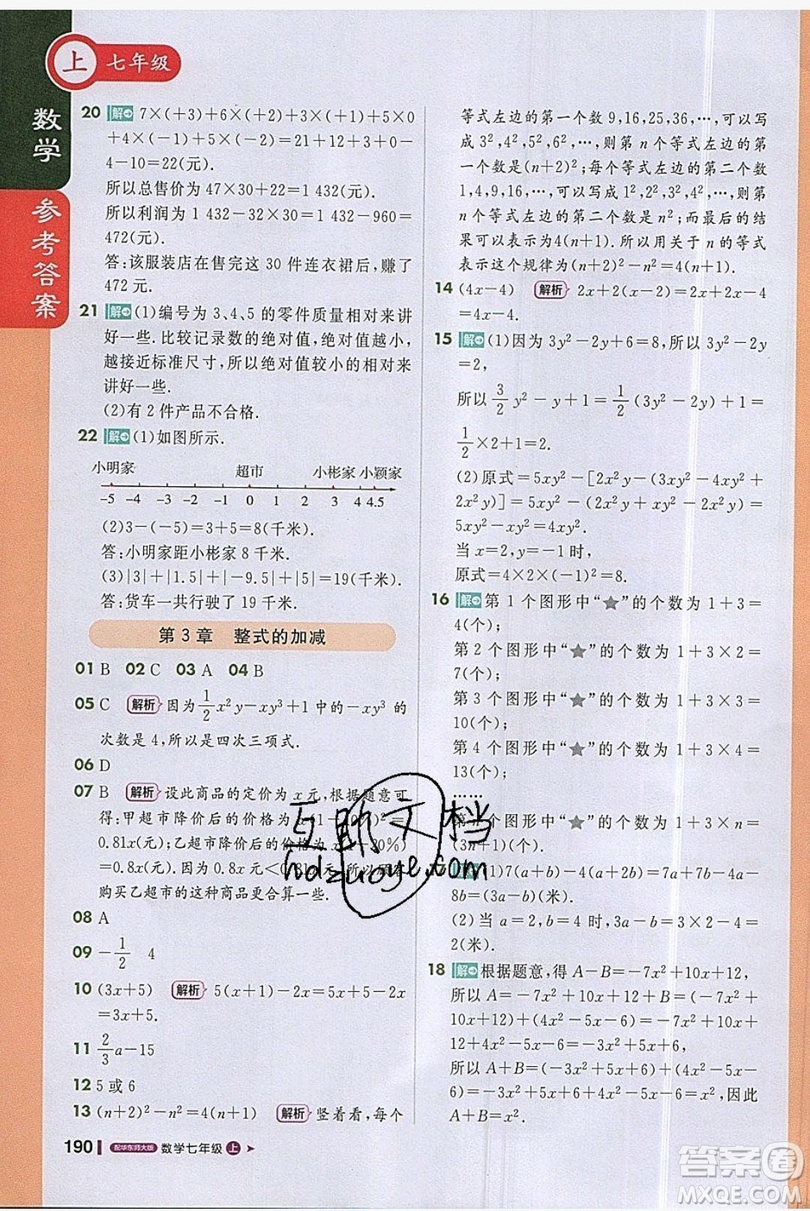 上 七年级
数学
参考答案
20 解 7×(+3)+6×(+2)+3×(+1)+5×0
+4×(-1)+5×(-2)=21+12+3+0-
4-10=22(元).
所以总售价为 47×30+22=1 432(元).
所以利润为 1 432-32×30=1 432-960=
472(元).
答:该服装店在售完这 30 件连衣裙后,赚了
472 元.
21 解 (1)编号为 3、4、5 的零件质量相对来讲
好一些. 比较记录数的绝对值,绝对值越小,
越接近标准尺寸,所以绝对值较小的相对来讲
好一些.
(2)有 2 件产品不合格.
22 解 (1)如图所示.
小明家 超市 小彬家 小颖家
-5 -4 -3 -2 -1 0 1 2 3 4 4.5
(2)3-(-5)=3+5=8(千米).
答:小明家距小彬家 8 千米.
(3)|3|+|1.5|+|-9.5|+|5|=19(千米).
答:货车一共行驶了 19 千米.
第 3 章 整式的加减
01 B 02 C 03 A 04 B
05 C 解析 因为1/2x²y-xy³+1 中的-xy³ 的
次数是 4,所以是四次三项式.
06 D
07 B 解析 设此商品的定价为 x 元,根据题意可
得:甲超市降价后的价钱为
0.81x(元);乙超市降价后的价钱为
=0.8x(元). 因为 0.8x 元<
购买乙超市的这种商品更合算一些.
08 A
09 -1/2 4
10 (3x+5) 解析 5(x+1)-2x=5x+5-2x
=3x+5.
11 2/3a-15
12 5 或 6
13 (n+2)²-n²=4(n+1) 解析 竖着看,每个
190 配华东师大版 数学七年级 上
等式左边的第一个数 9,16,25,36,…,可以写
成 3²,4²,5²,6²,…,则第 n 个等式左边的第
一个数是(n+2)²;每个等式左边的第二个数
1,4,9,16,…,可以写成 1²,2²,3²,4²,…,则第
n 个等式左边的第二个数是 n²;而最后的结
果可以表示为 4(n+1). 所以用关于 n 的等式
表示这个规律为(n+2)²-n²=4(n+1).
14 (4x-4) 解析 2x+2(x-2)=2x+2x-4
=4x-4.
15 解 (1)因为 3y²-2y+6=8,所以 3y²-2y
=2,
所以3/2y²-y+1=1/2(3y²-2y)+1=
1/2×2+1=2.
(2)原式=5xy²-[2x²y-2x²y+3xy²]=
5xy²-2x²y+2x²y-3xy²=2xy².
当 x=4,y=-1 时,
原式=4×2×(-1)²=8.
16 解 第 1 个图形中“★”的个数为 1+3=
4(个);
第 2 个图形中“★”的个数为 1+3×2=
7(个);
第 3 个图形中“★”的个数为 1+3×3=
10(个);
第 4 个图形中“★”的个数为 1+3×4=
13(个);
……
第 n 个图形中“★”的个数为 1+3×n=
(3n+1)(个).
(1)7(a+b)-4(a+2b)=7a+7b-4a-
8b=(3a-b)(米).
(2)当 a=2,b=4 时,3a-b=3×2-4=
2(米).
18 解 根据题意,得 A-B=-7x²+10x+12,
所以 A=-7x²+10x+12+B=-7x²+
10x+12+4x²-5x-6=-3x²+5x+6,
所以 A+B=(-3x²+5x+6)+
(4x²-5x-6)=-3x²+5x+6+4x²-5x-
6=x².
互助文档
hdzuoye.com
答案圈
MXQE.COM